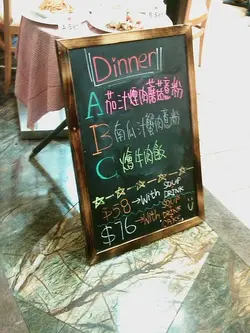 Dinner
A 茄汁煙肉蘑菇意粉
B 南瓜汁蟹肉意粉
C 燴牛肉飯
$58 →WITH SOUP DRINK
$76 →WITH SOUP DRINK